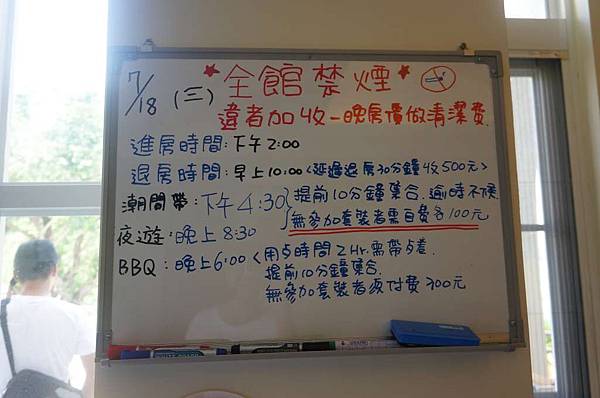 7/18 (三) ★全館禁煙★
違者加收一晚房價做清潔費.
進房時間:下午2:00
退房時間:早上10:00<延遲退房30分鐘收500元>
潮間帶:下午4:30 提前10分鐘集合.逾時不候
夜遊:晚上8:30 無參加套裝者需自費各100元
BBQ:晚上6:00<用餐時間2Hr.需帶餐卷.
提前10分鐘集合.
無參加套裝者須付費300元
WHITE BOARD